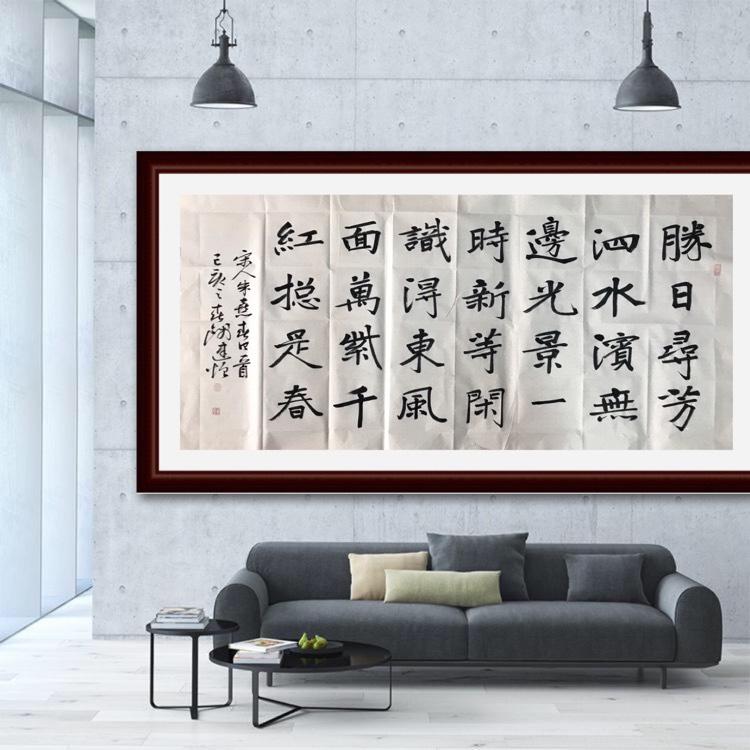 勝日尋芳
泗水濱無
邊光景一
時新等閑
識淂東風
面萬紫千
紅搃是春
宋人朱熹春日一首
己亥之春